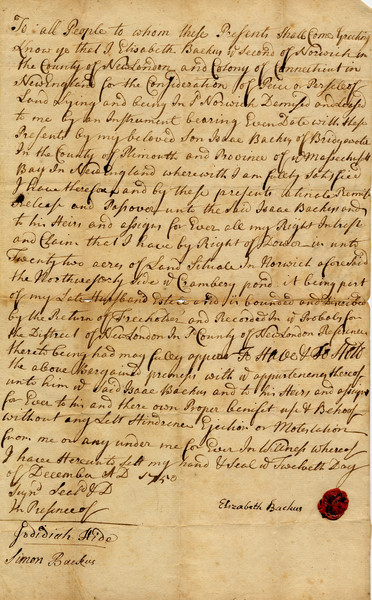 To all People to whom these Presents Shall Come Greeting
Know ye that I Elisabeth Backus ye Second of Norwich in
the County of New London and Colony of Connecticut in
New England for the Consideration of Peice or Persele of
Land Lying and being In sd Norwich Demised and
to me by an Instrument bearing Even Date with these
Presents by my beloved Son Isaac Backus of Bridgwater
In the County of Plimouth and Province of ye Massechusets
Bay In New England wherewith I am fully Satisfied
I have therefore and by these presents Remise
Release and Passover unto the said Isaac Backus and
to his Heirs and assigns for Ever all my Right Intrest
and Claim that I have by Right of Dower in unto
Twenty two acres of Land Situate In Norwich aforesaid
the Northwestorly Side of Crambery pond it being part
of my Late Husband and is bounded and
by the Return of Freeholders and Recorded In ye Probats for
the District of New London In sd County of New London Reference
thereto being had may fuley appear To Have & To Hold
the above Bargained premises with ye appurtenences thereof
unto him ye said Isaac Backus and to his Heirs and assigns
for Ever to his and there own Proper benefit use & Behoof
without any Lett Hindrence Ejection or Molestation
from me or any under me for Ever In Wittness whereof
I have Hereunto Sett my hand & Seal ye Day
of December A D 1750
Signd Seald & D
In Presence of
Elizabeth Backus
Jedidiah Hide
Simon Backus